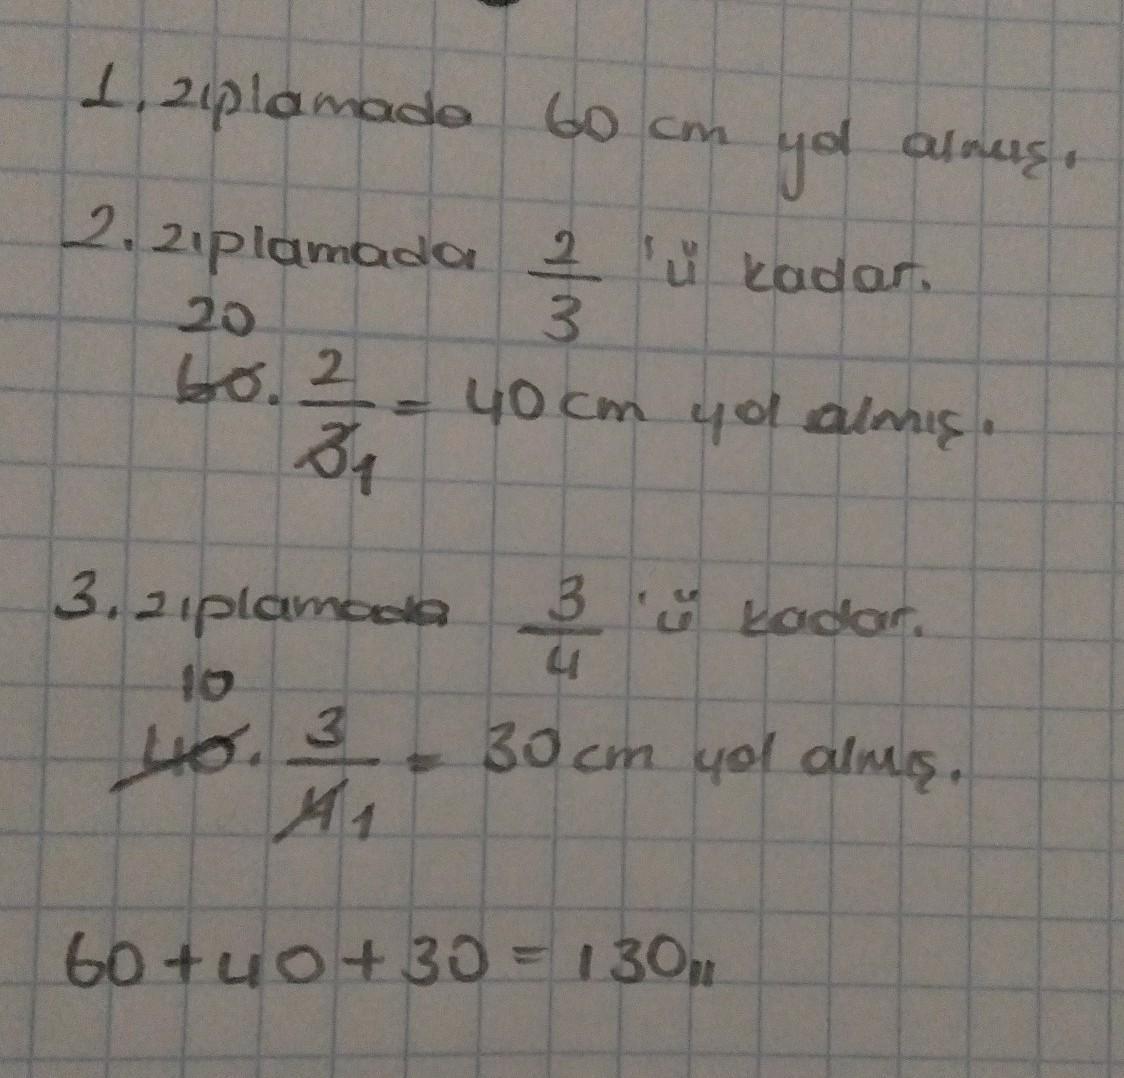 1. zıplamada 60 cm yol almış.
2. zıplamada 2/3 'ü kadar.
20
60. 2/3 1 = 40 cm yol almış.
3. zıplamada 3/4 'ü kadar.
10
40. 3/4 1 = 30 cm yol almış.
60+40+30=130,,